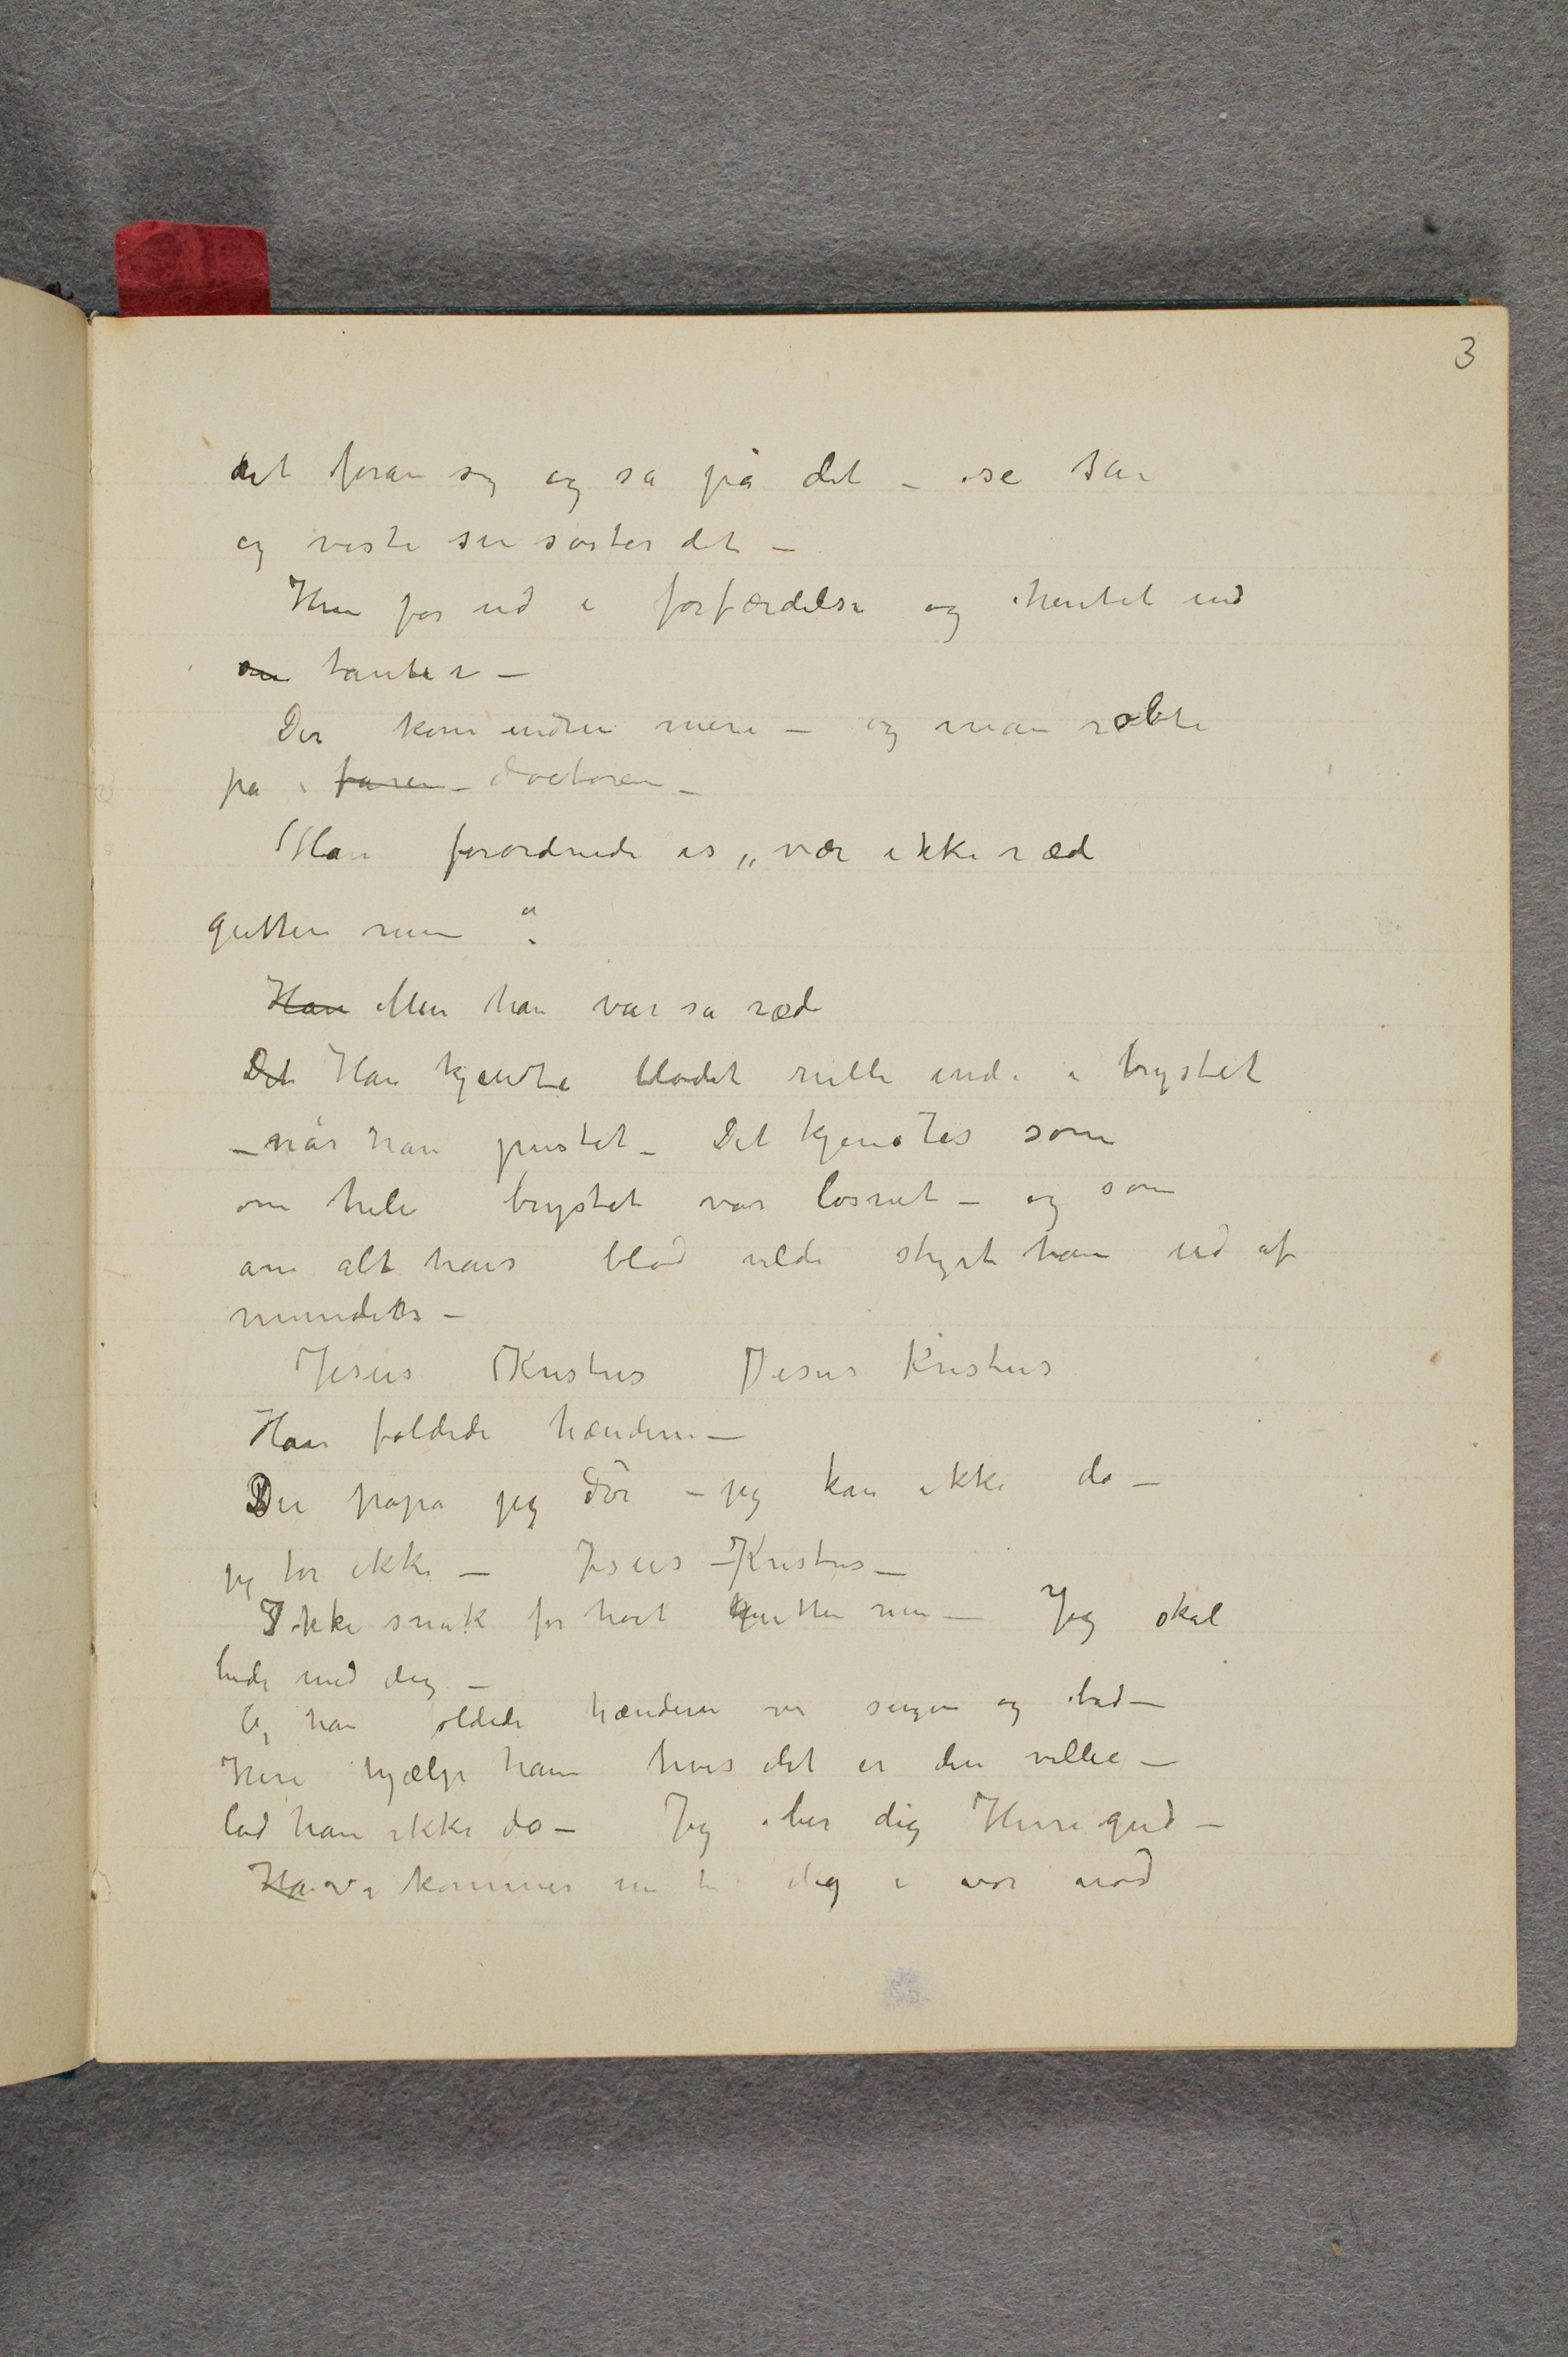 3
det foran sig og så på det – se sa
og viste sin søster det –
Hun for ud i forfærdelse og hentet ind
om tanten –
Der kom endnu mere – og man robte
på faren – doctoren –
Han forordnede is „vær ikke ræd
gutten min“.
Han Men han var så ræd
Det Han kjendte blodet rulle inde i brystet
– når han pustet – Det kjendtes som
om hele brystet var løsnet – og som
om alt hans blod vilde styrte ham ud af
munden –
Jesus Kristus Jesus Kristus
Han foldede hænderne –
Du papa jeg dör – jeg kan ikke dø –
jeg tør ikke – Jesus – Kristus –
Ikke snak for høit gutten min – Jeg skal
bede med dig –
Og han oldede hænderne over sengen og bad –
Herre hjælp ham hvis det er din villie –
lad ham ikke dø – Jeg ber dig Herre gud –
Ha Vi kommer nu til dig i vor nød